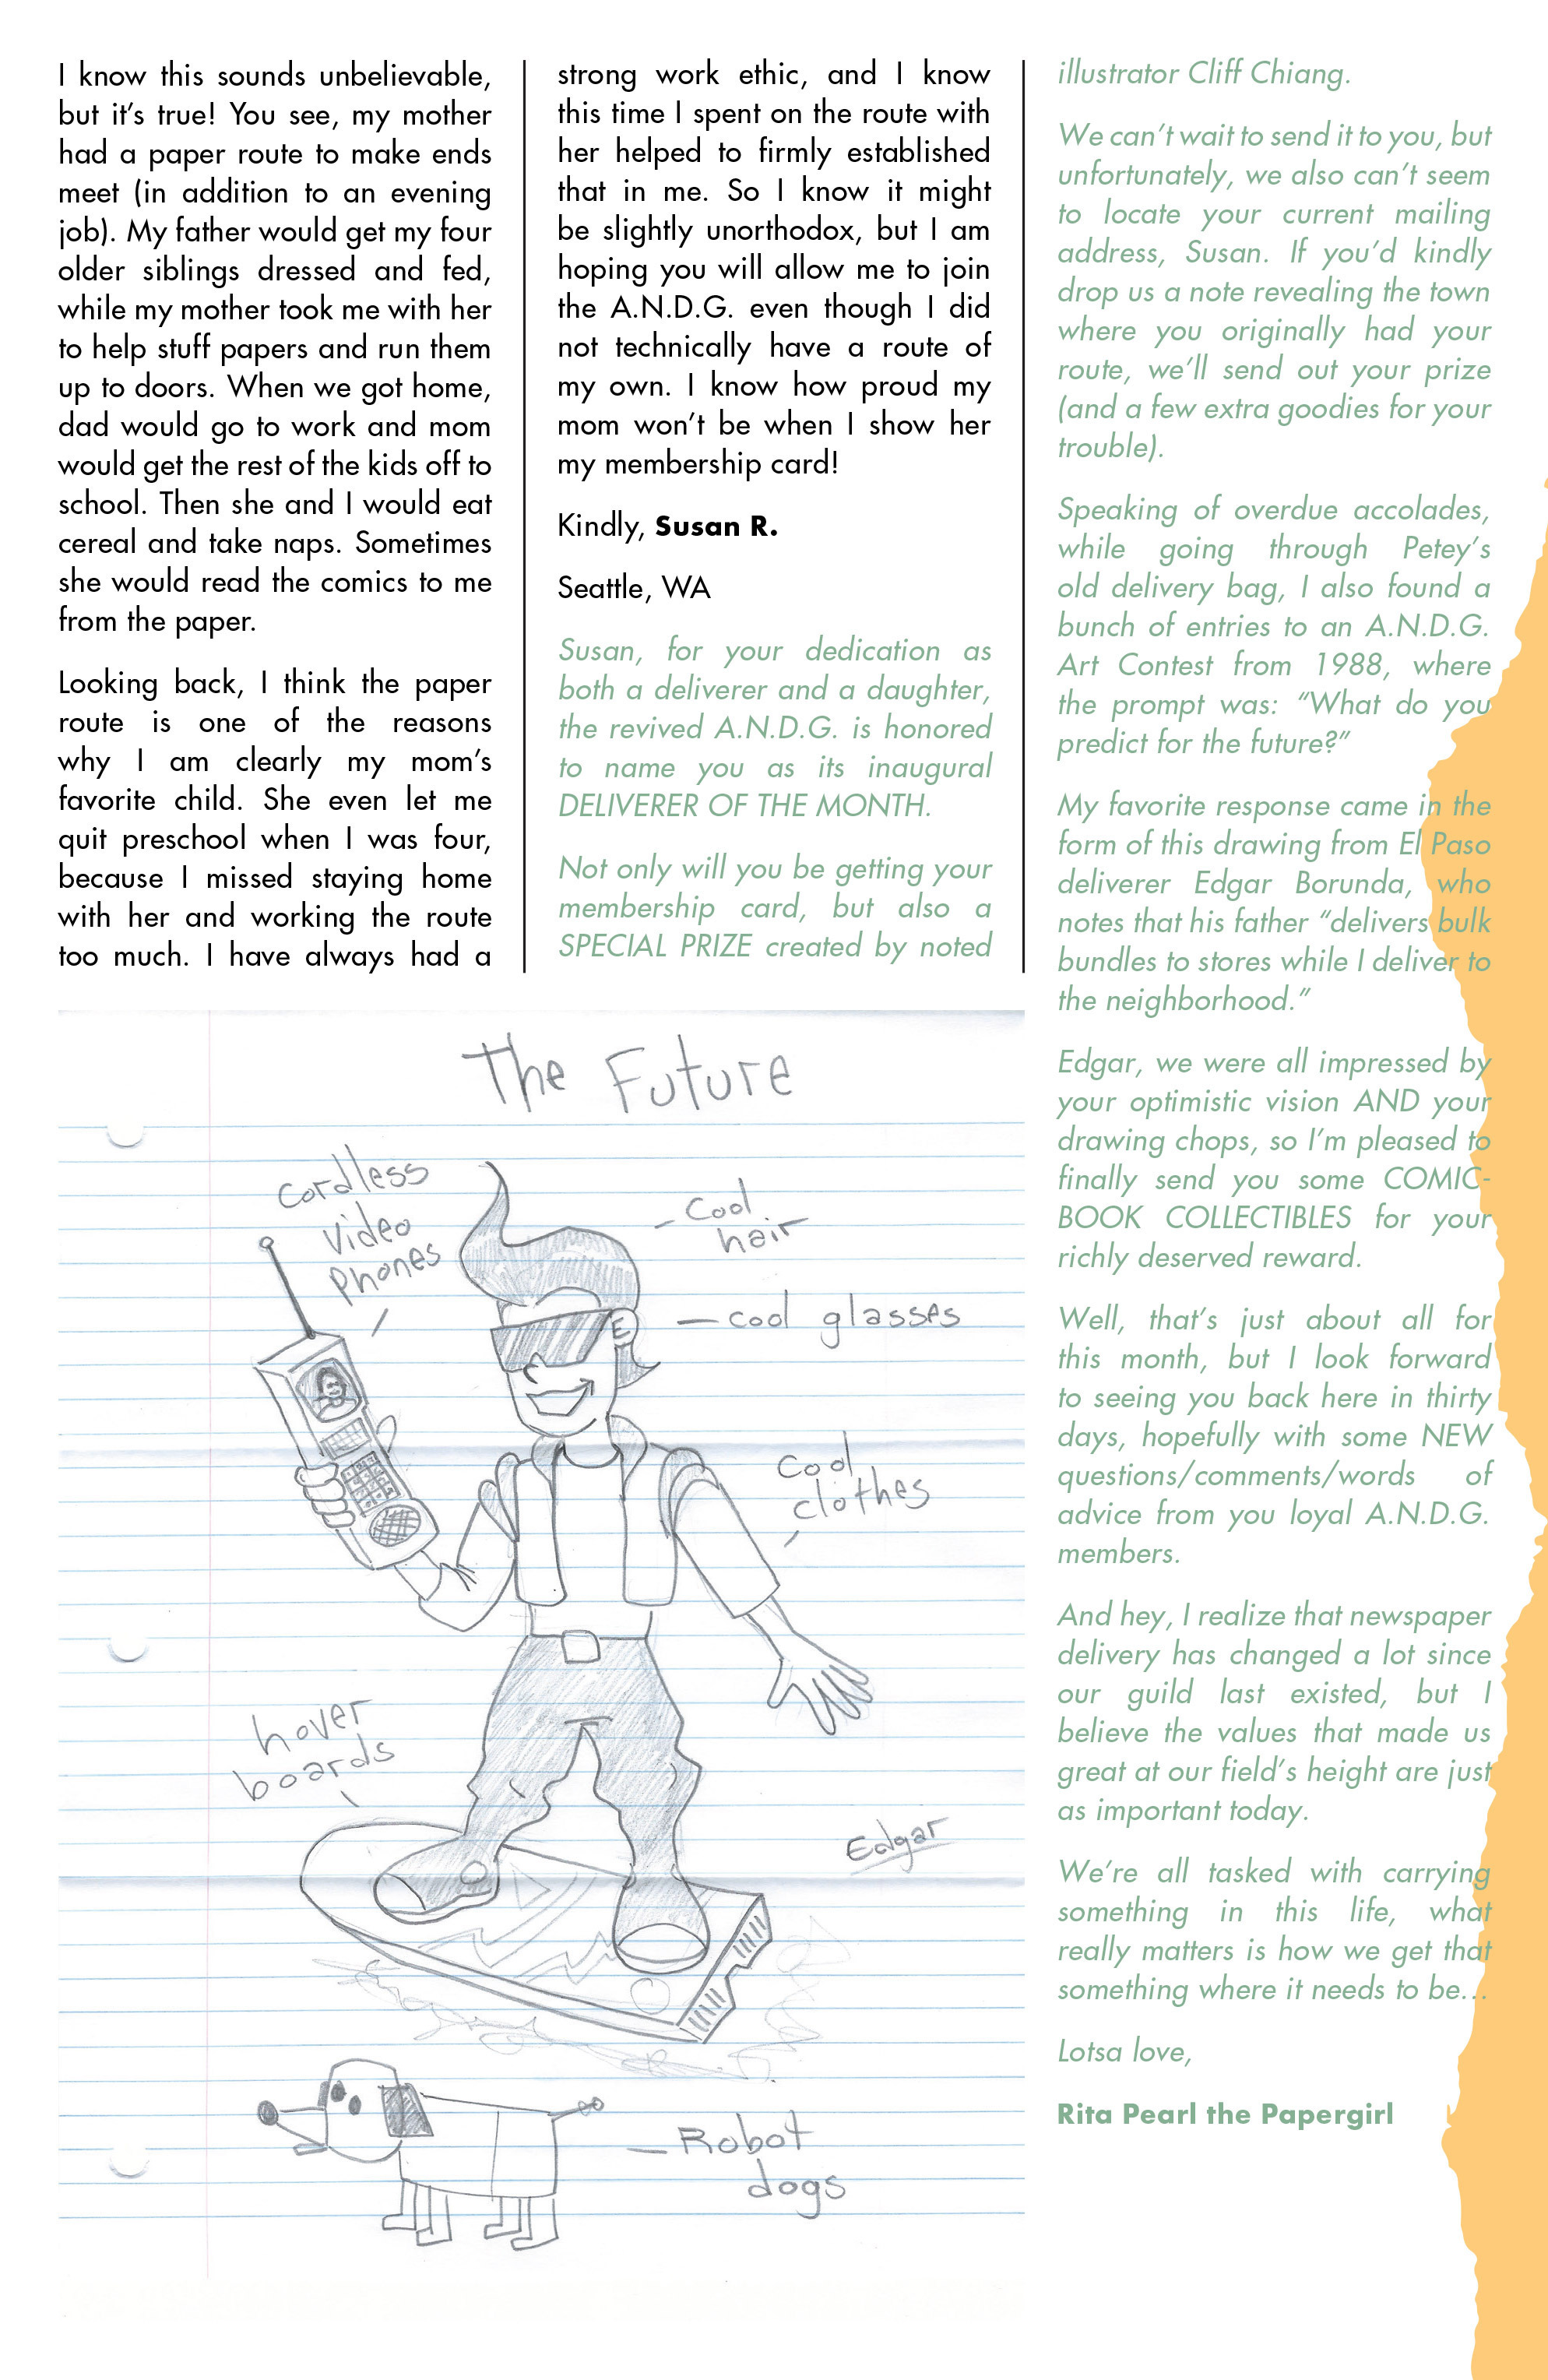 I know this sounds unbelievable,
but it’s true! You see, my mother
had a paper route to make ends
meet (in addition to an evening
job). My father would get my four
older siblings dressed and fed,
while my mother took me with her
to help stuff papers and run them
up to doors. When we got home,
dad would go to work and mom
would get the rest of the kids off to
school. Then she and I would eat
cereal and take naps. Sometimes
she would read the comics to me
from the paper.
Looking back, I think the paper
route is one of the reasons
why I am clearly my mom’s
favorite child. She even let me
quit preschool when I was four,
because I missed staying home
with her and working the route
too much. I have always had a
strong work ethic, and I know
this time I spent on the route with
her helped to firmly established
that in me. So I know it might
be slightly unorthodox, but I am
hoping you will allow me to join
the A.N.D.G. even though I did
not technically have a route of
my own. I know how proud my
mom won’t be when I show her
my membership card!
Kindly, Susan R.
Seattle, WA
Susan, for your dedication as
both a deliverer and a daughter,
the revived A.N.D.G. is honored
to name you as its inaugural
DELIVERER OF THE MONTH.
Not only will you be getting your
membership card, but also a
SPECIAL PRIZE created by noted
illustrator Cliff Chiang.
We can’t wait to send it to you, but
unfortunately, we also can’t seem
to locate your current mailing
address, Susan. If you’d kindly
drop us a note revealing the town
where you originally had your
route, we’ll send out your prize
(and a few extra goodies for your
trouble).
Speaking of overdue accolades,
while going through Petey’s
old delivery bag, I also found a
bunch of entries to an A.N.D.G.
Art Contest from 1988, where
the prompt was: “What do you
predict for the future?”
My favorite response came in the
form of this drawing from El Paso
deliverer Edgar Borunda, who
notes that his father “delivers bulk
bundles to stores while I deliver to
the neighborhood.”
Edgar, we were all impressed by
your optimistic vision AND your
drawing chops, so I’m pleased to
finally send you some COMIC-
BOOK COLLECTIBLES for your
richly deserved reward.
Well, that’s just about all for
this month, but I look forward
to seeing you back here in thirty
days, hopefully with some NEW
questions/comments/words of
advice from you loyal A.N.D.G.
members.
And hey, I realize that newspaper
delivery has changed a lot since
our guild last existed, but I
believe the values that made us
great at our field’s height are just
as important today.
We’re all tasked with carrying
something in this life, what
really matters is how we get that
something where it needs to be…
Lotsa love,
Rita Pearl the Papergirl
The Future
cordless
video
phones
cool
hair
cool glasses
E
cool
clothes
hover
boards
Edgar
Robot
dogs